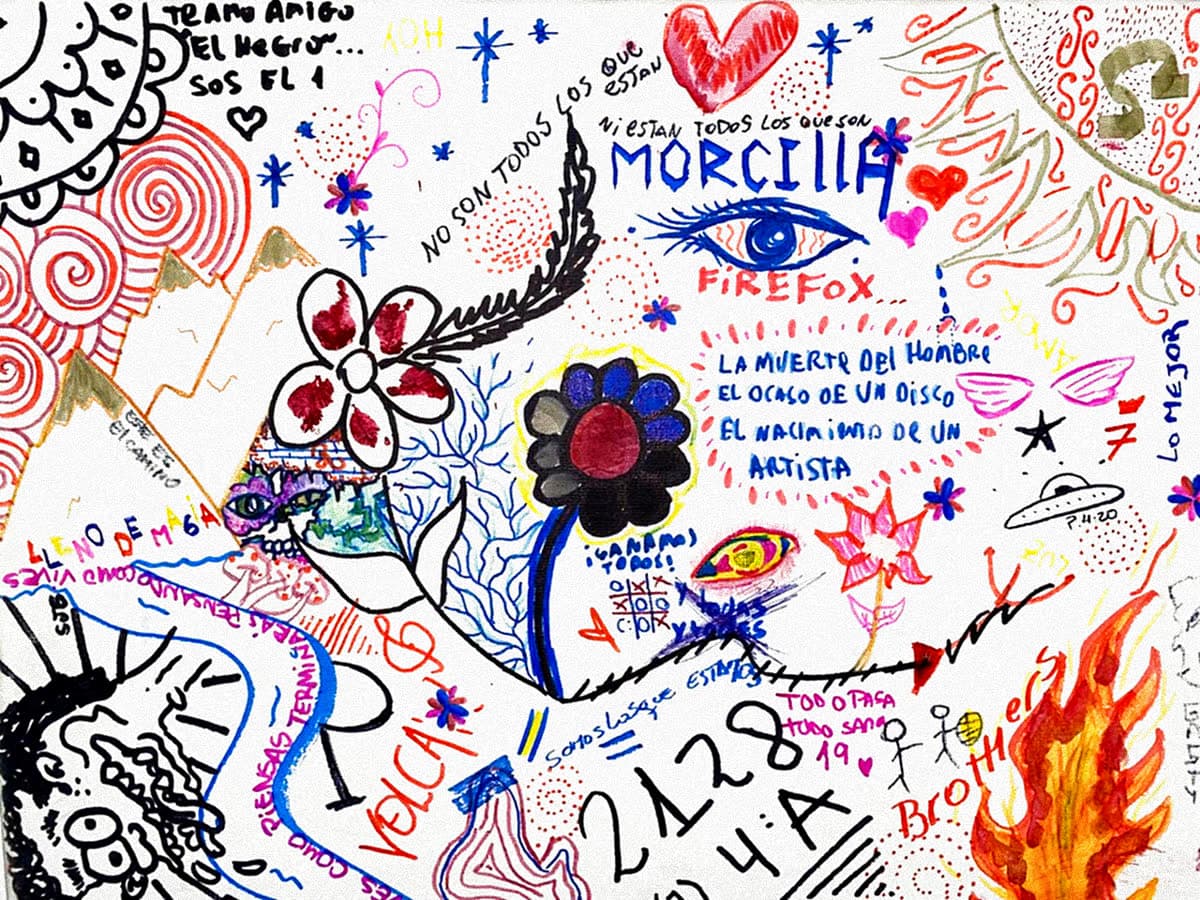 TE AMO AMIGO
"El Negro"...
SOS EL 1
HOY
NO SON TODOS LOS QUE
ESTAN
NI ESTAN TODOS LOS QUE SON
MORCIllA
FiREFOX...
LA MUERTE DEL HOMBRE
EL OCASO DE UN DISCO
EL NACIMIENTO DE UN
ARTISTA
AMOR
LO MEJOR
7
7.4.20
LUZ
ESTE ES
El CAMINO
LLENO DE MAGiA
COMO VIVES
PENSANDO
TERMINARÁS
PIENSAS
COMO
¡GANAMOS
TODOS!
O X X
X O O
Y TODAS
Y TODES
SOMOS LOS QUE ESTAMOS
TODO PASA
TODO SANA
19
VOLCA
2128
4:A
BroTHers